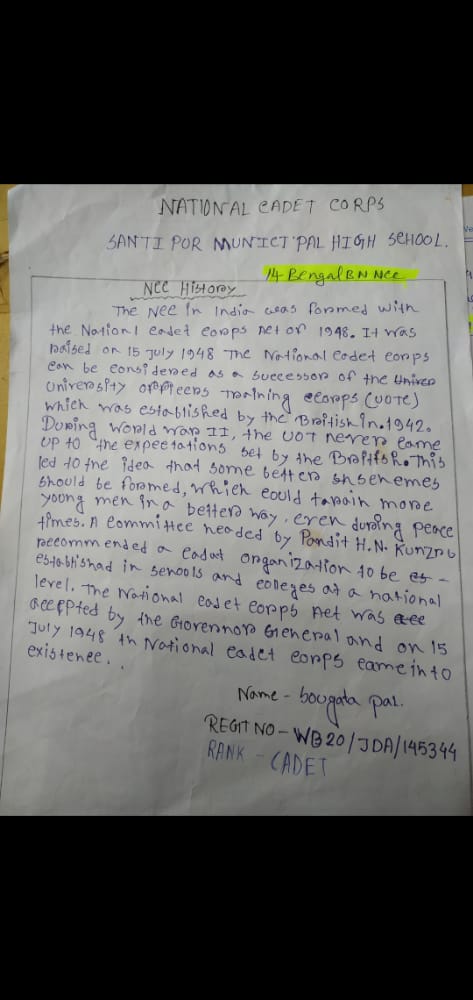 NATIONAL CADET CORPS
SANTIPOR MUNICIPAL HIGH SCHOOL.
14 Bengal BN NCC
NCC History
The NCC in India was formed with
the Nationl cadet corps act of 1948. It was
raised on 15 July 1948 The National Cadet corps
can be considered as a successor of the Univer
University officers Training ecorps (UOTC)
which was established by the British in. 1942.
During World war II, the UOT never came
up to the expectations set by the British. This
led to the idea that some better shschemes
should be formed, which could tarain more
young men in a better way, even during peace
times. A committee headed by Pandit H.N. Kunzru
recommended a cadat organization to be es-
established in schools and colleges at a national
level. The National cadet corps Act was acc
accepted by the Governor General and on 15
July 1948 th National cadet corps came into
existence..
Name - bougata pal.
REGIT NO - WB20/JDA/145344
RANK - CADET